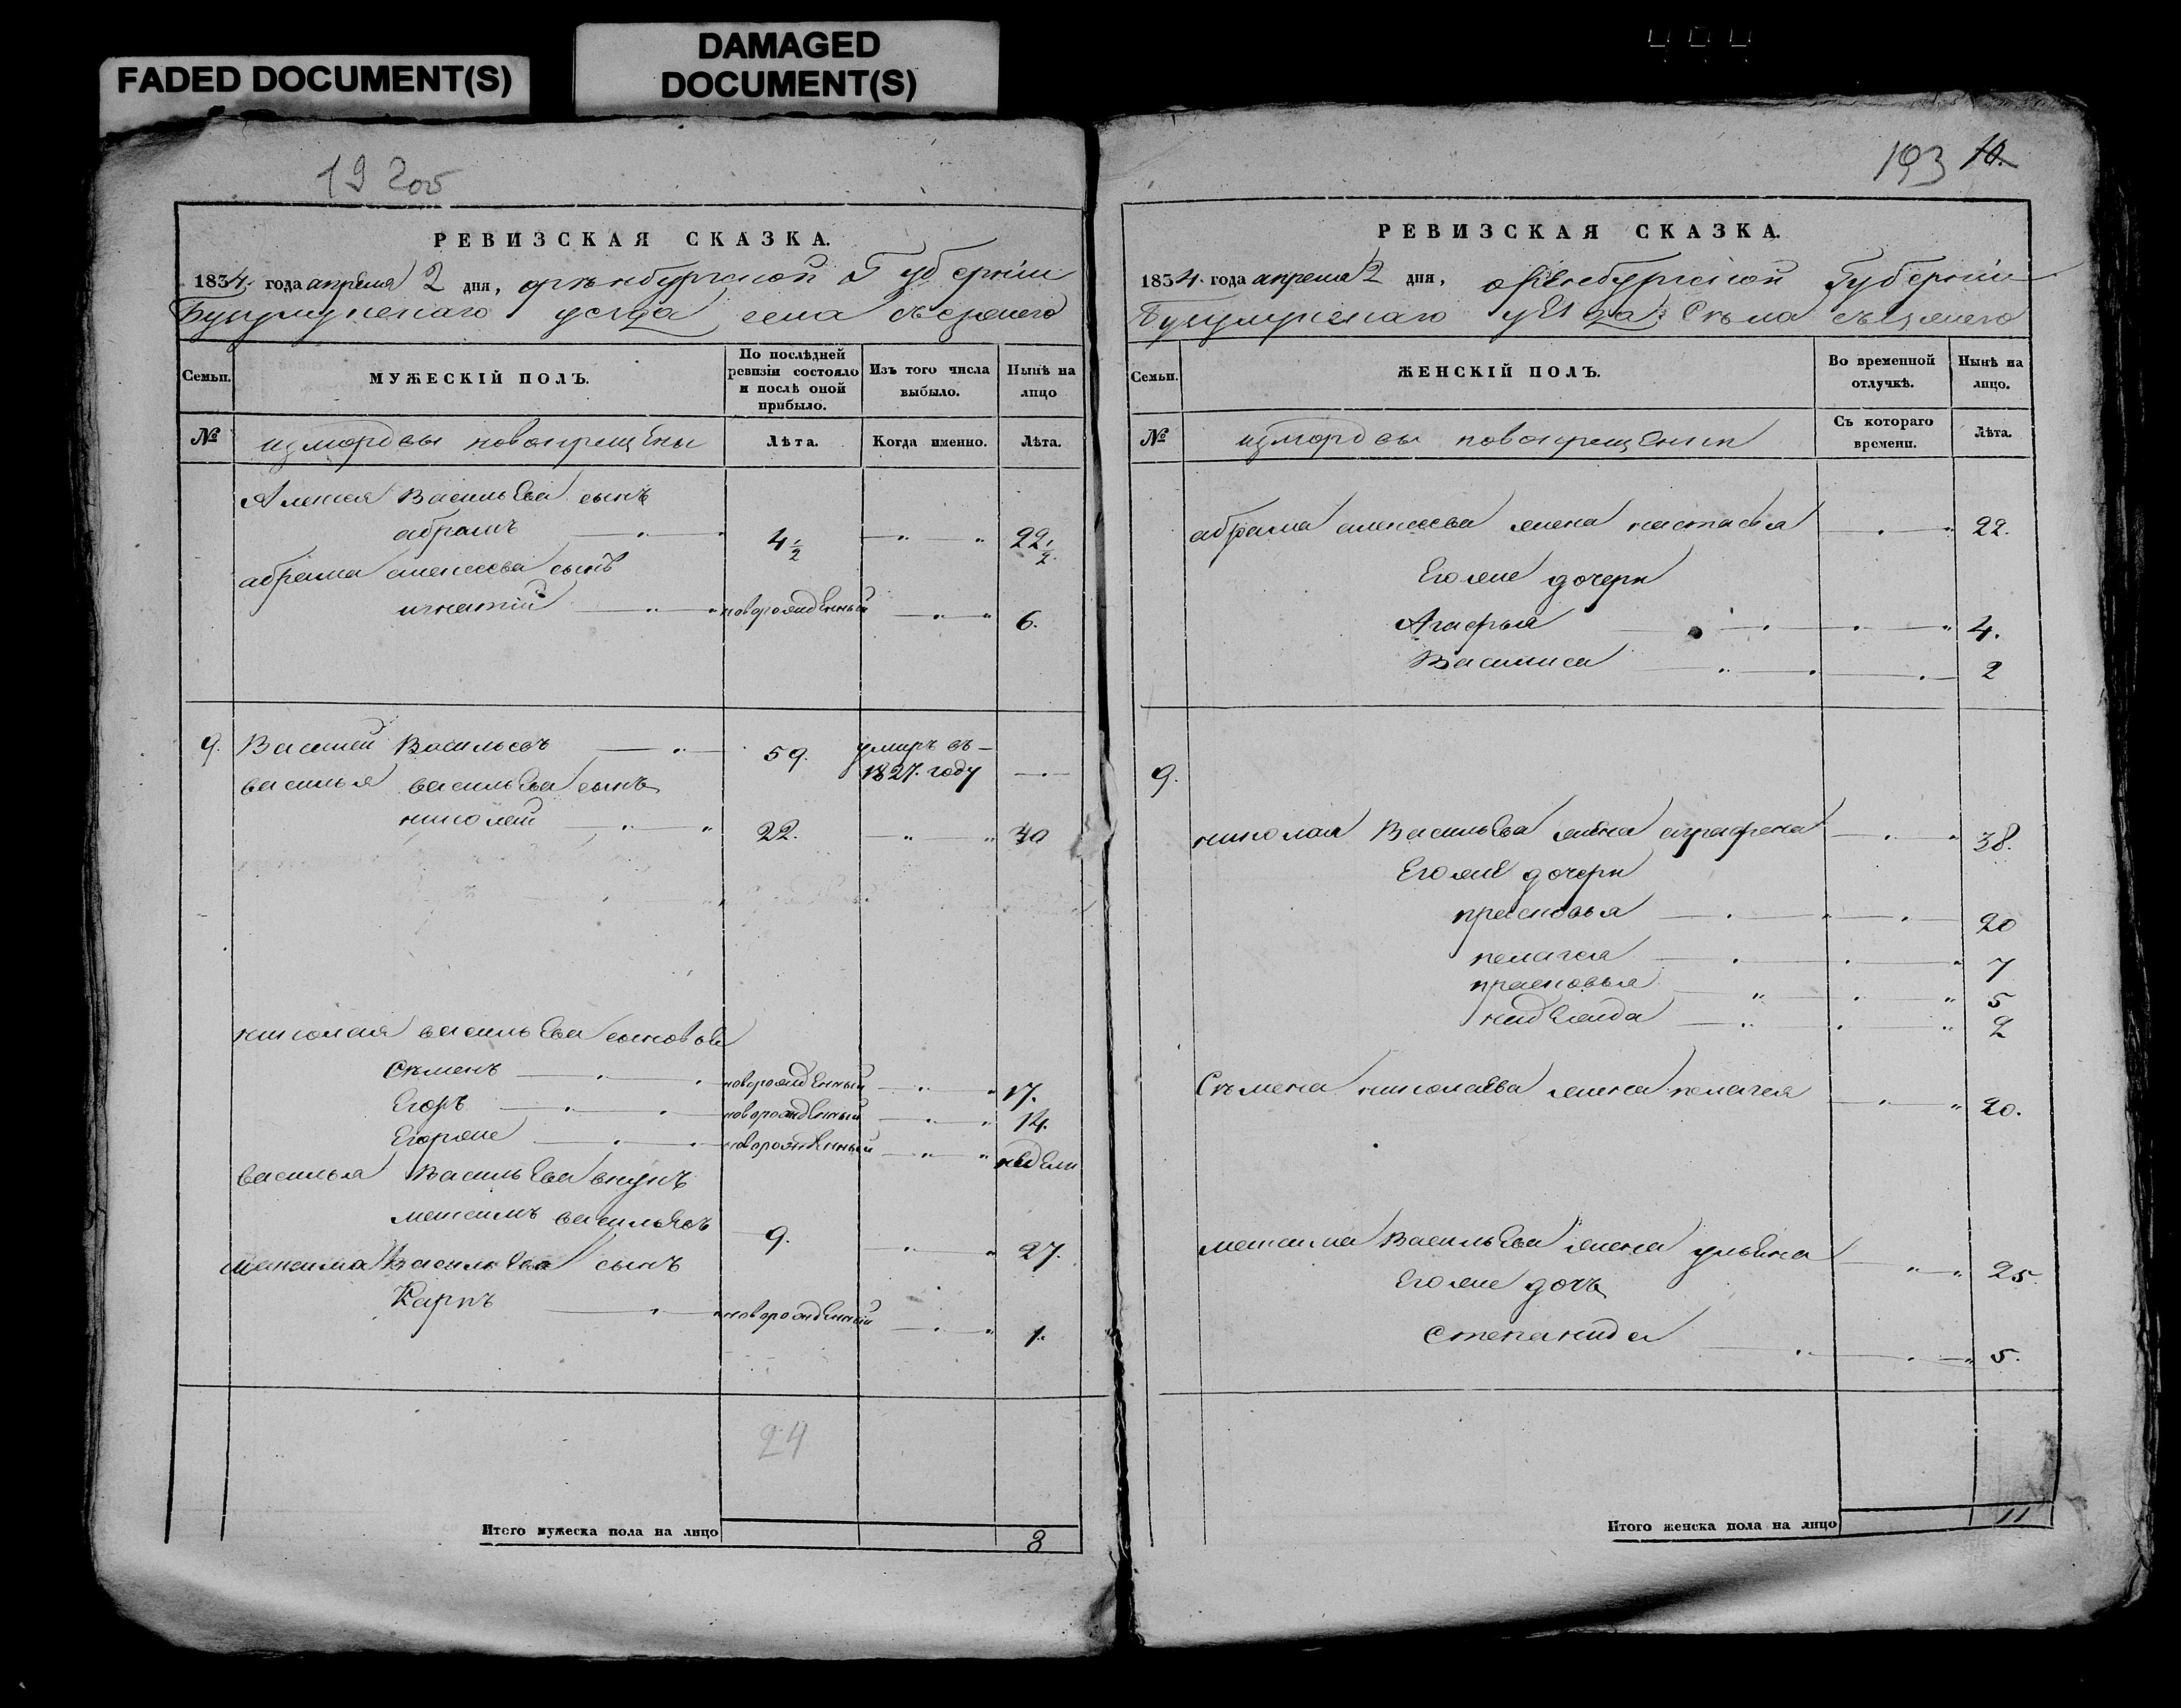 FADED DOCUMENT(S)
DAMAGED
DOCUMENT(S)
19 200
РЕВИЗСКАЯ СКАЗКА.
1834. года апреля 2 дня, оренбургской Губернии
Бугульминскаго уезда села
Семьи.
МУЖЕСКІЙ ПОЛЪ.
По послѣдней ревизіи состояло и послѣ оной прибыло.
Изъ того числа выбыло.
Нынѣ на лицо
№
измордвы новокрещены
Лѣта.
Когда именно.
Лѣта.
Алексея Васильева сынъ
абрамъ 4 1/2 22 1/2.
абрама алексеева сынъ
игнатий новорожденный 6.
9. Василей Васильевъ 59. умиръ въ 1827. году
василья васильева сынъ
николай 22. 40
николая васильева сыновья
Семенъ новорожденный 17.
Егоръ новорожденный 14.
Егорже новорожденный недели
василья Васильева внукъ
максимъ васильевъ 9. 27.
максима Васильева сынъ
Карпъ новорожденный 1.
24
Итого мужеска пола на лицо 8
193 10.
РЕВИЗСКАЯ СКАЗКА.
1834. года апреля 2 дня, оренбургской Губернии
Бугульминскаго уезда
Семьи.
ЖЕНСКІЙ ПОЛЪ.
Во временной отлучкѣ.
Нынѣ на лицо.
№
измордвы новокрещении
Съ котораго времени.
Лѣта.
абрама алексеева жена настасья 22.
Егоже дочери
Агафья 4.
Василиса 2
9.
николая Васильева жена аграфена 38.
Егоже дочери
прасковья 20
пелагея 7
прасковья 5
надежда 2
Семена николаева жена пелагея 20.
максима Васильева жена ульяна 25.
Егоже дочь
степанида 5.
Итого женска пола на лицо 11